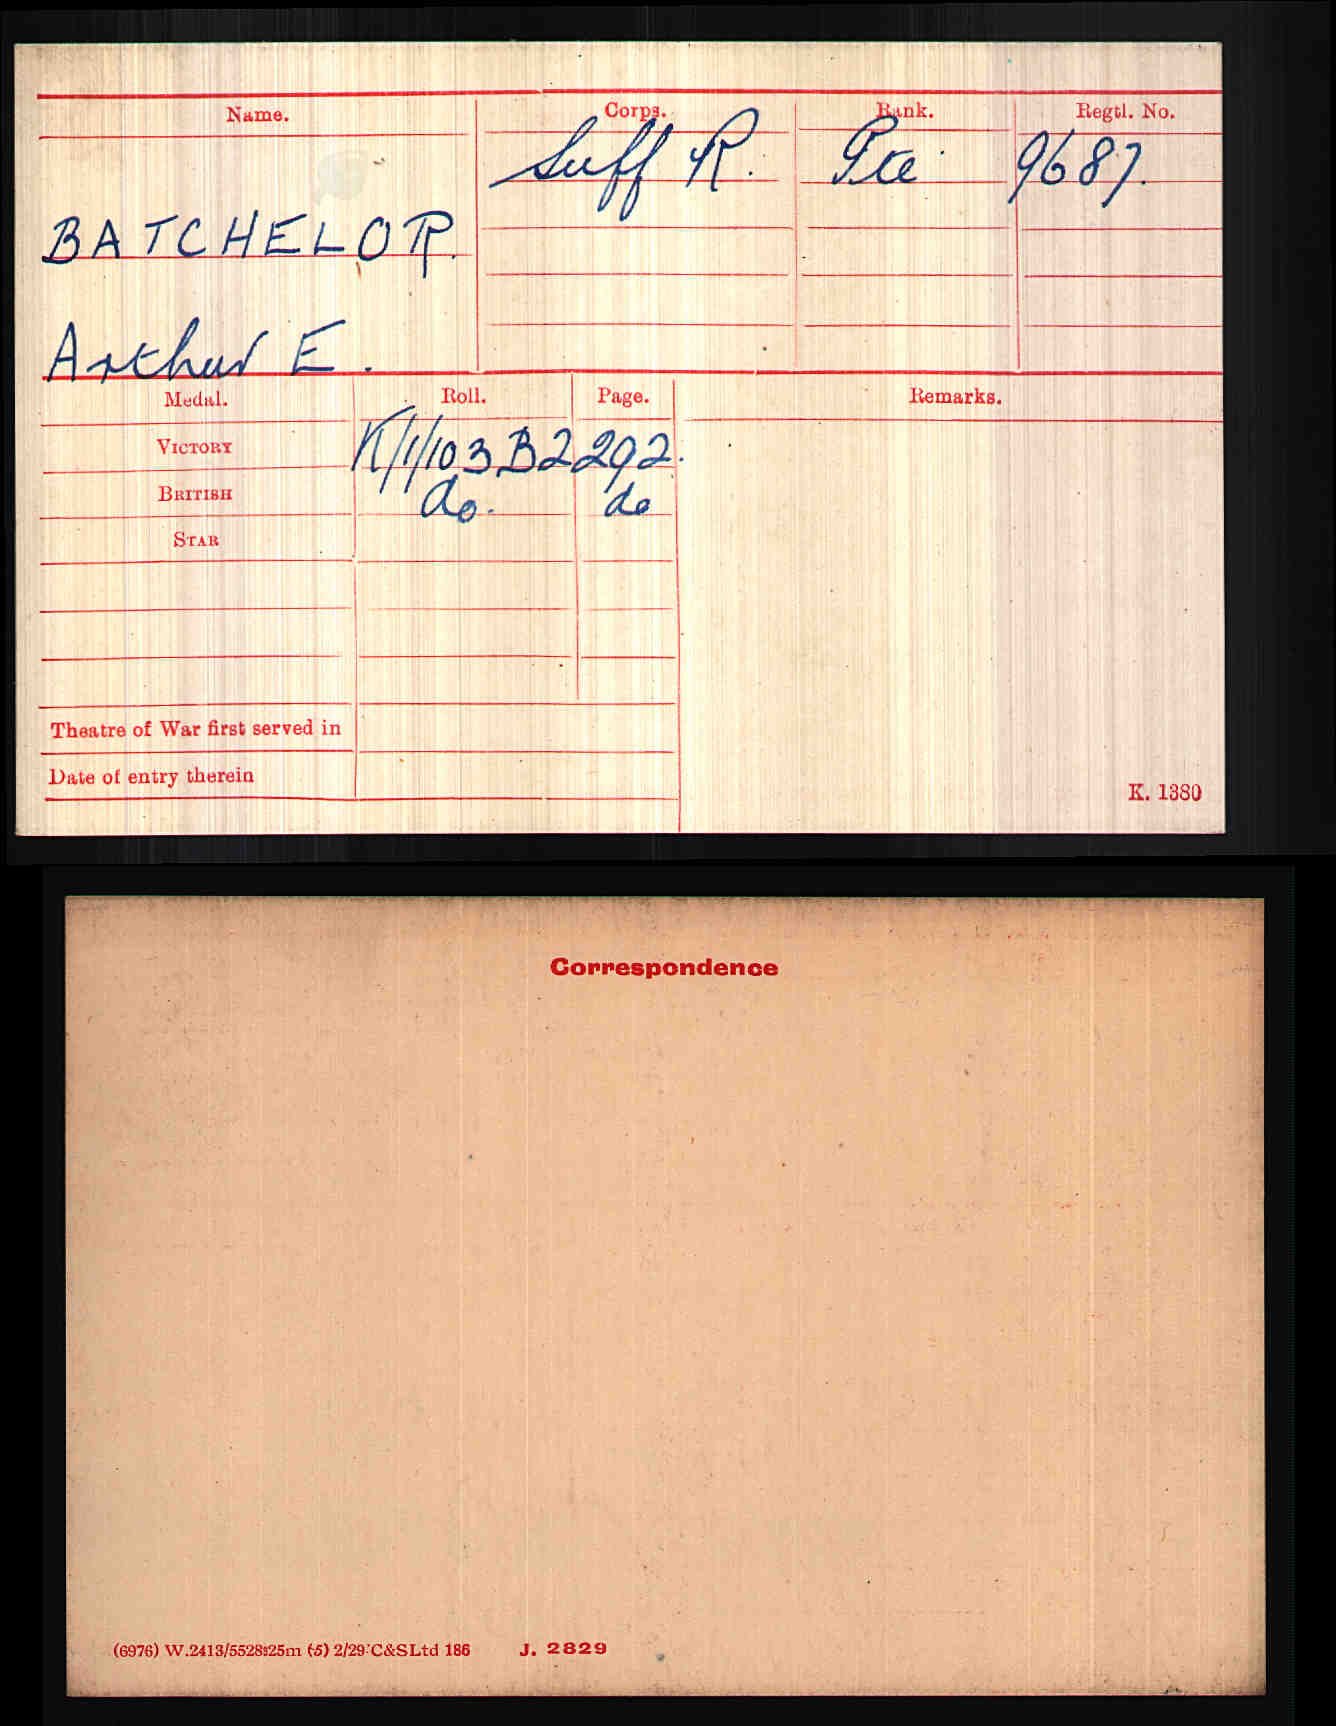 Name. Corps. Rank. Regtl. No.
Suff R. Pte 9687.
BATCHELOR.
Arthur E.
Medal. Roll. Page. Remarks.
VICTORY K/1/103 B2 292.
BRITISH do. do
STAR
Theatre of War first served in
Date of entry therein
K. 1380
Correspondence
(6976) W.2413/5528 25m (5) 2/29 C&SLtd 186 J. 2829